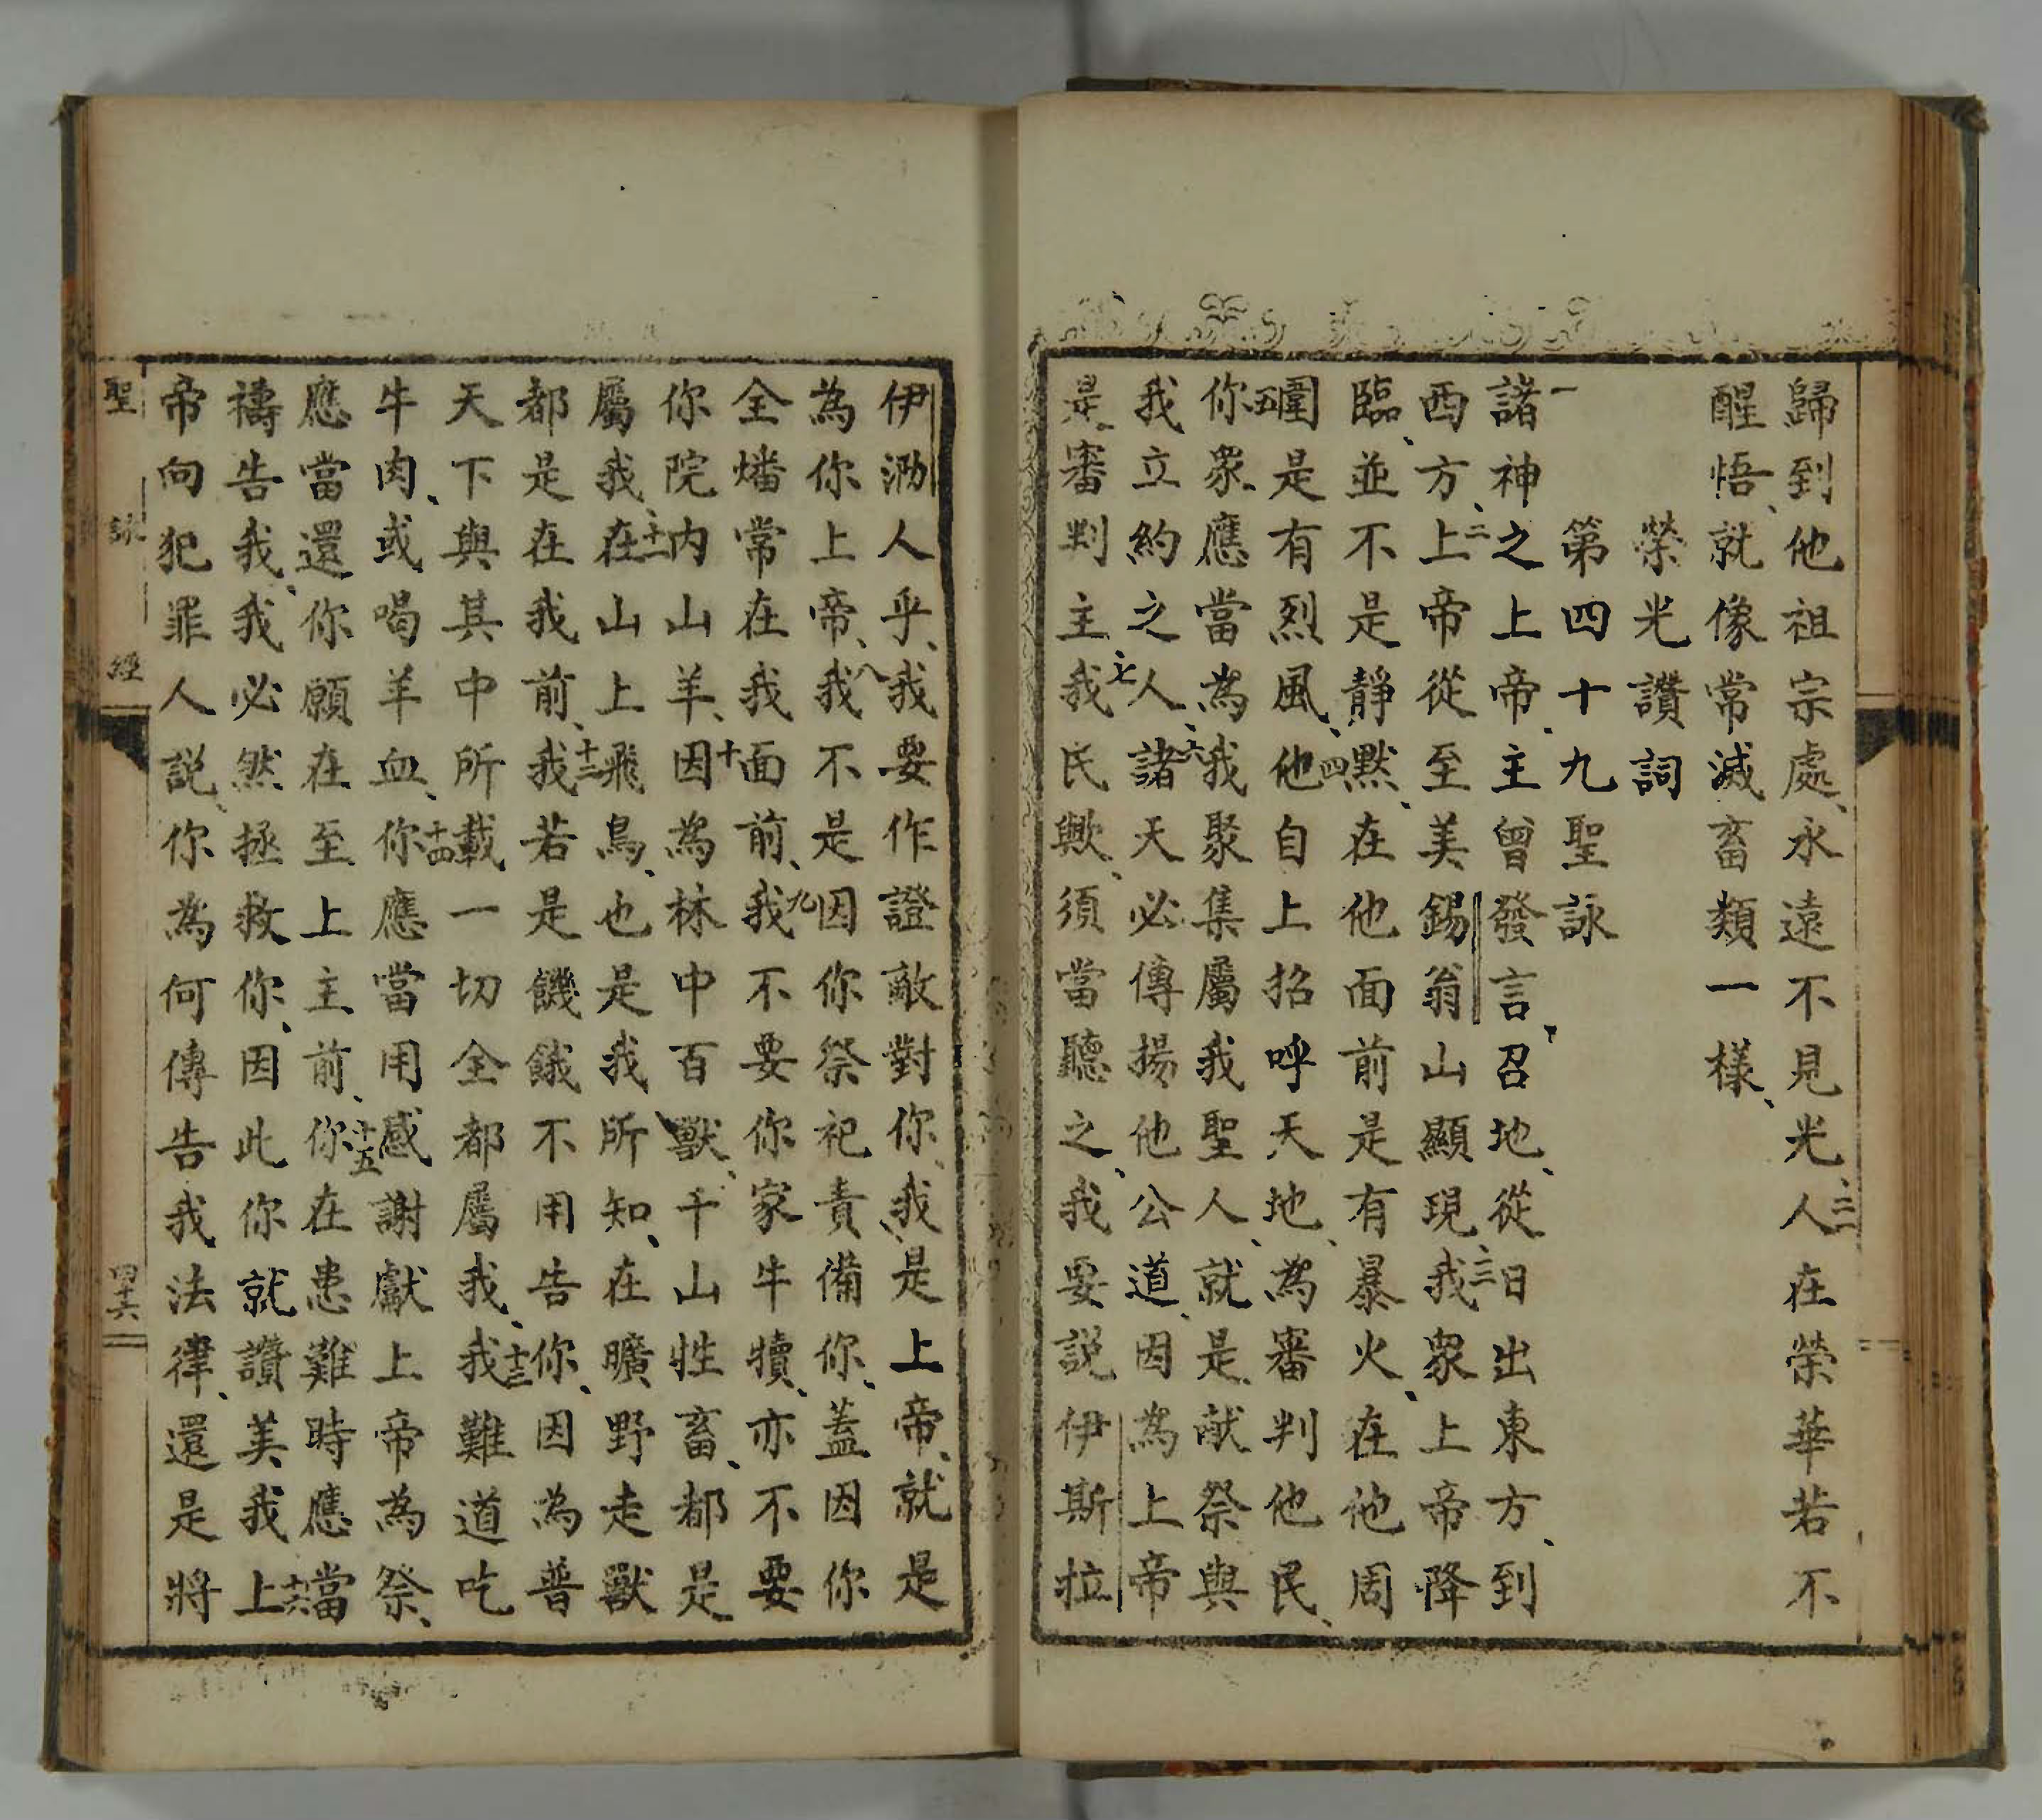 歸到他祖宗處、永遠不見光、二一人在榮華若不
醒悟、就像常滅畜類一樣、
榮光讚詞
第四十九聖詠
一諸神之上帝、主曾發言、召地、從日出東方、到
西方、二上帝從至美錫翁山顯現、三我衆上帝降
臨、並不是靜默、在他面前是有暴火、在他周
圍是有烈風、四他自上招呼天地、為審判他民、
五你衆、應當為我聚集屬我聖人、就是、献祭與
我立約之人、六諸天必傳揚他公道、因為上帝
是、審判主、七我民歟、須當聽之、我要説伊斯拉
伊泐人乎、我要作證敵對你、我是上帝、就是
為你上帝、八我不是因你祭祀責備你、蓋因你
全燔常在我面前、九我不要你家牛犢、亦不要
你院內山羊、十因為林中百獸、千山牲畜、都是
屬我、十一在山上飛鳥、也是我所知、在曠野走獸
都是在我前、十二我若是饑餓不用告你、因為普
天下與其中所載一切全都屬我、十三我難道吃
牛肉、或喝羊血、十四你應當用感謝獻上帝為祭、
應當還你願在至上主前、十五你在患難時應當
禱告我、我必然拯救你、因此你就讚美我、十六上
帝向犯罪人説、你為何傳告我法律、還是將
聖詠經 四十六